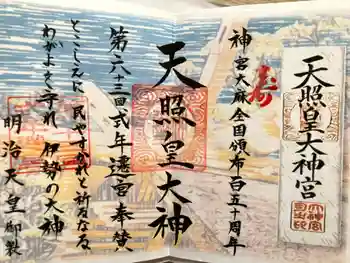 天照皇大神宮
寿
神宮大麻全国頒布百五十周年
天照皇大神
第六十三回式年遷宮奉賛
とこしえに 民やすかれと祈るなる
わがよを守れ 伊勢の大神
明治天皇御製